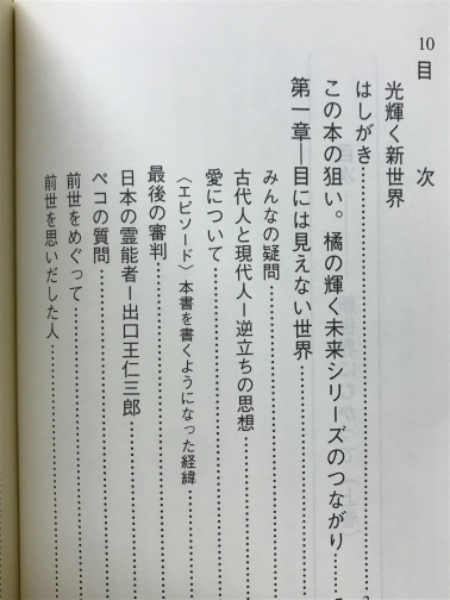 10
目次
光輝く新世界
はしがき
この本の狙い。橘の輝く未来シリーズのつながり
第一章—目には見えない世界
みんなの疑問
古代人と現代人ー逆立ちの思想
愛について
〈エピソード〉本書を書くようになった経緯
最後の審判
日本の霊能者ー出口王仁三郎
ペコの質問
前世をめぐって
前世を思いだした人